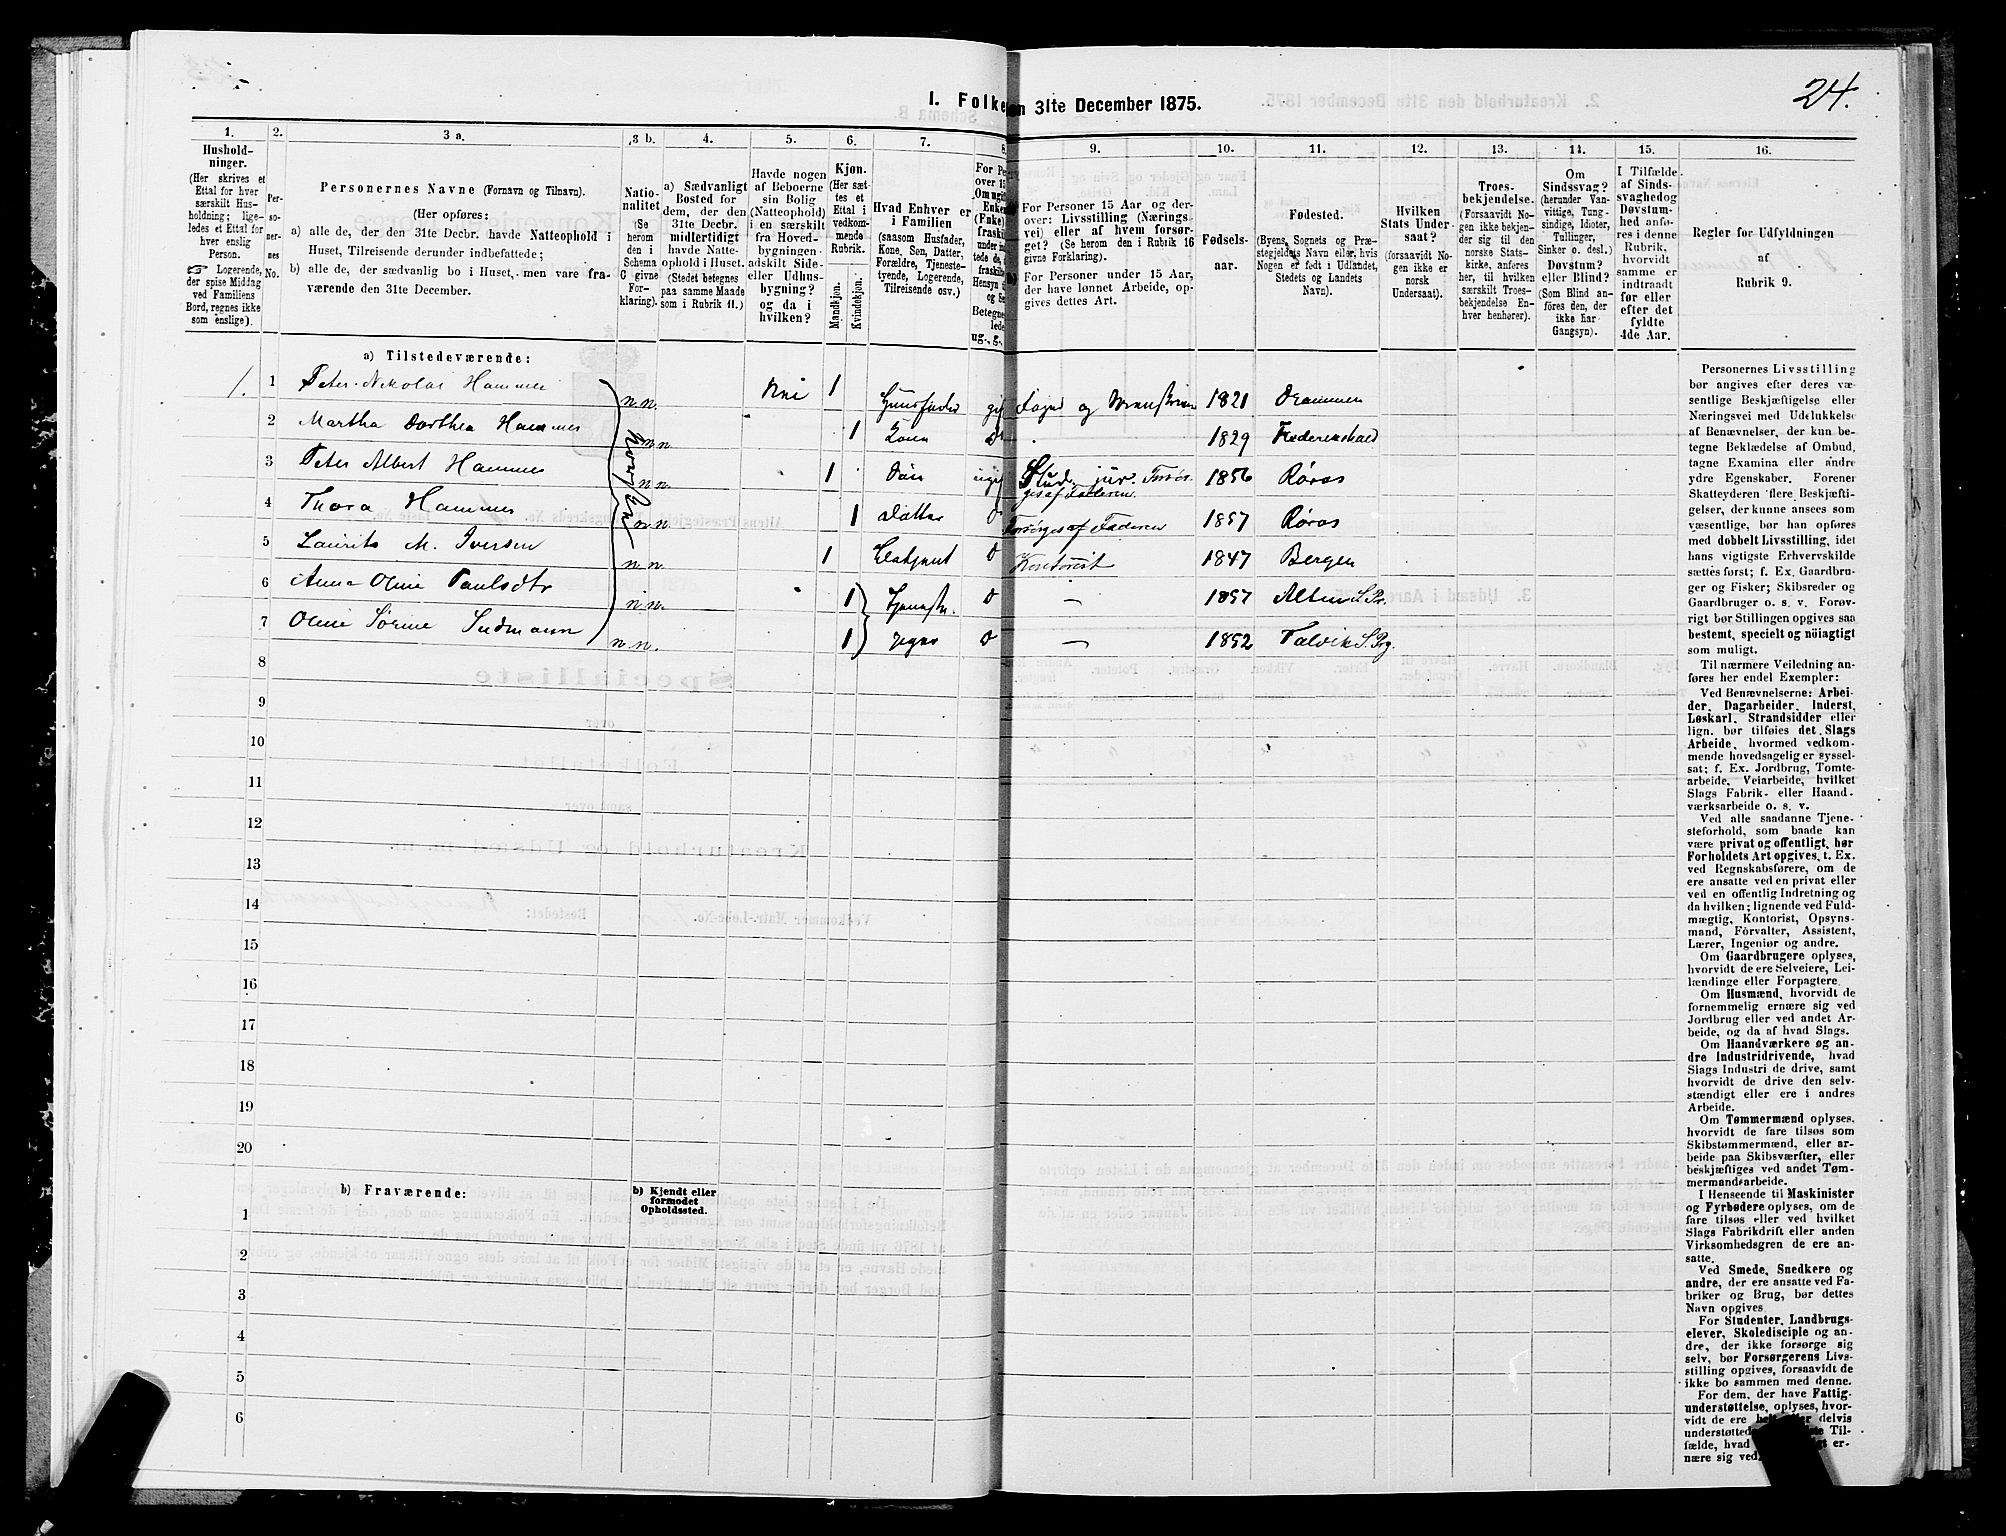 24.
I. Folke
en 31te December 1875.
1.
2.
3 a.
3 b.
4.
5.
6.
7.
8.
9.
10.
11.
12.
13.
14.
15.
16.
Hushold-
ninger.
(Her skrives et
Ettal for hver
særskilt Hus-
holdning; lige-
ledes et Ettal for
hver enslig
Person.
☞ Logerende,
der spise Middag
ved Familiens
Bord, regnes ikke
som enslige).
Per-
so-
ner-
nes
No.
Personernes Navne (Fornavn og Tilnavn).
(Her opføres:
a) alle de, der den 31te Decbr. havde Natteophold i
Huset, Tilreisende derunder indbefattede;
b) alle de, der sædvanlig bo i Huset, men vare fra-
værende den 31te December.
Natio-
nalitet
(Se
herom
den i
Schema
C givne
For-
klaring).
a) Sædvanligt
Bosted for
dem, der den
31te Decbr.
midlertidigt
havde Natte-
ophold i Huset.
(Stedet betegnes
paa samme Maade
som i Rubrik 11.)
Havde nogen
af Beboerne
sin Bolig
(Natteophold)
i en særskilt
fra Hoved-
bygningen
adskilt Side-
eller Udhus-
bygning?
og da i
hvilken?
Kjøn.
(Her sæt-
tes et
Ettal i
vedkom-
mende
Rubrik.
Mandkjøn.
Kvindekjøn.
Hvad Enhver er
i Familien
(saasom Husfader,
Kone, Søn, Datter,
Forældre, Tjeneste-
tyende, Logerende,
Tilreisende osv.)
For Pe
over 15
Om ugift
Enken
(Enke)
fraskilt
under ind
tede de,
fraskilte
Hensyn ti
og Se
Betegne
lede
ug., g.,
For Personer 15 Aar og der-
over: Livsstilling (Nærings-
vei) eller af hvem forsør-
get? (Se herom den i Rubrik 16
givne Forklaring).
For Personer under 15 Aar,
der have lønnet Arbeide, op-
gives dettes Art.
Fødsels-
aar.
Fødested.
(Byens, Sognets og Præ-
stegjeldets Navn eller, hvis
Nogen er født i Udlandet,
Stedets og Landets
Navn).
Hvilken
Stats Under-
saat?
(forsaavidt No-
gen ikke er
norsk
Undersaat).
Troes-
bekjendelse.
(Forsaavidt No-
gen ikke bekjen-
der sig til den
norske Stats-
kirke, anføres
her, til hvilken
særskilt Troes-
bekjendelse En-
hver henhører).
Om
Sindssvag?
(herunder Van-
vittige, Tung-
sindige, Idioter,
Tullinger,
Sinker o. desl.)
Døvstum?
eller Blind?
(Som Blind an-
føres den, der
ikke har
Gangsyn).
I Tilfælde
af Sinds-
svaghed og
Døvstum-
hed anfø-
res i denne
Rubrik,
hvorvidt
samme er
indtraadt
før eller
efter det
fyldte
4de Aar.
Regler for Udfyldningen
af
Rubrik 9.
a) Tilstedeværende:
1. 1 Peter Nikolai Hammer n.n. Nei 1 Huusfader gif Foged og 1821 Drammen
2 Martha Dorthea Hammer n.n. 1 Kone 1829 Frederikshald
3 Peter Albert Hammer n.n. 1 Søn ugif Stud. jur. Forsør-
ges af Faderen 1856 Røros
4 Thora Hammer n.n. 1 Datter D Forsørges af Faderen 1857 Røros
5 Laurits M. Iversen n.n. 1 D Kontorist 1847 Bergen
6 Anna Oline Paulsdtr n.n. 1 Tjenestr. D — 1857 Alten S. Pr.
7 Oline Sørine Sudmann n.n. 1 D — 1852 Talvik S. Prg.
Norsk
8
9
10
11
12
13
14
15
16
17
18
19
20
b) Fraværende:
b) Kjendt eller
formodet
Opholdssted.
1
2
3
4
5
6
Personernes Livsstilling
bør angives efter deres væ-
sentlige Beskjæftigelse eller
Næringsvei med Udelukkelse
af Benævnelser, der kun be-
tegne Beklædelse af Ombud,
tagne Examina eller andre
ydre Egenskaber. Forener
Skatteyderen flere Beskjæfti-
gelser, der kunne ansees som
væsentlige, bør han opføres
med dobbelt Livsstilling, idet
hans vigtigste Erhvervskilde
sættes først; f. Ex. Gaardbru-
ger og Fisker; Skibsreder og
Gaardbruger o. s. v. Forøv-
rigt bør Stillingen opgives saa
bestemt, specielt og nöiagtigt
som muligt.
Til nærmere Veiledning an-
føres her endel Exempler:
Ved Benævnelserne: Arbei-
der, Dagarbeider, Inderst,
Løskarl, Strandsidder eller
lign. bør tilføies det Slags
Arbeide, hvormed vedkom-
mende hovedsagelig er syssel-
sat; f. Ex. Jordbrug, Tomte-
arbeide, Veiarbeide, hvilket
Slags Fabrik- eller Haand-
værksarbeide o. s. v.
Ved alle saadanne Tjene-
steforhold, som baade kan
være privat og offentligt, bør
Forholdets Art opgives, t. Ex.
ved Regnskabsførere, om de
ere ansatte ved en privat eller
ved en offentlig Indretning og
da hvilken; lignende ved Fuld-
mægtig, Kontorist, Opsyns-
mand, Forvalter, Assistent,
Lærer, Ingeniør og andre.
Om Gaardbrugere oplyses,
hvorvidt de ere Selveiere, Lei-
lændinge eller Forpagtere.
Om Husmænd, hvorvidt de
fornemmelig ernære sig ved
Jordbrug eller ved andet Ar-
beide, og da af hvad Slags.
Om Haandværkere og an-
dre Industridrivende, hvad
Slags Industri de drive, samt
hvorvidt de drive den selv-
stændigt eller ere i andres
Arbeide.
Om Tømmermænd oplyses,
hvorvidt de fare tilsøs som
Skibstømmermænd, eller ar-
beide paa Skibsværfter, eller
beskjæftiges ved andet Tøm-
mermandsarbeide.
I Henseende til Maskinister
og Fyrbødere oplyses, om de
fare tilsøs eller ved hvilket
Slags Fabrikdrift eller anden
Virksomhedsgren de ere an-
satte.
Ved Smede, Snedkere og
andre, der ere ansatte ved Fa-
briker og Brug, bør dettes
Navn opgives.
For Studenter, Landbrugs-
elever, Skoledisciple og an-
dre, der ikke forsørge sig
selv, bør Forsørgerens Livs-
stilling opgives, forsaavidt de
ikke bo sammen med denne.
For dem, der have Fattig-
understøttelse, oplyses, hvor-
vidt de ere delvis
understøttede Til-
fælde, hvad er-
nære sig ved.